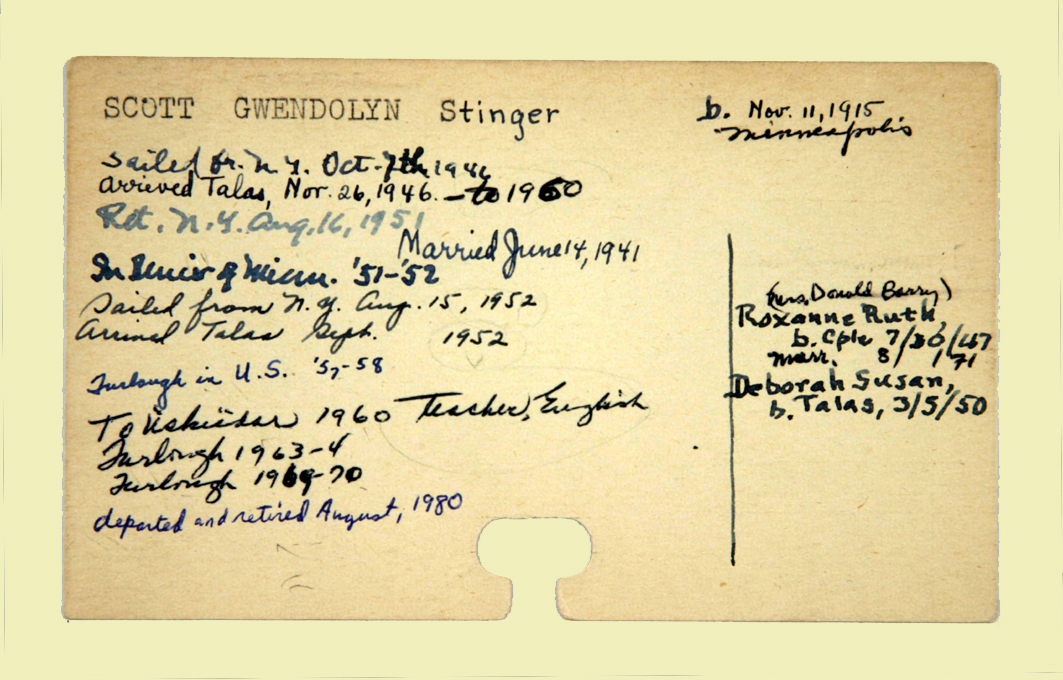 SCOTT GWENDOLYN Stinger
b. Nov. 11, 1915
Minneapolis
Sailed fr. N.Y. Oct. 7th 1946
Arrieved Talas, Nov. 26, 1946. – to 1960
Ret. N.Y. Aug. 16, 1951
Married June 14, 1941
In Univ of Minn. '51-'52
Sailed from N.Y. Aug. 15, 1952
Arrived Talas Sept. 1952
Furlough in U.S. '57-58
To Üsküdar 1960 Teacher, English
Furlough 1963-4
Furlough 1969-70
departed and retired August, 1980
(Mrs. Donald Barry)
Roxanne Ruth
b. Cple 7/30/47
Marr. 8/1/71
Deborah Susan,
b. Talas, 3/5/50